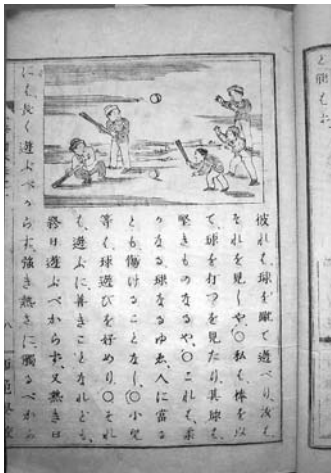 彼れも、球を蹴て遊べり、汝も、
それを見しや、〇私も、棒を以
て、球を打つを見たり、其球も、
堅きものなるや、〇これも、柔
かなる球なるゆゑ、人に當る
とも傷けることなし、〇小兒
等も、球遊びを好めり、〇それ
も、遊ぶに善きことなれども、
終日遊ぶべからず、又熱き日
にも、長く遊ぶべからず、強き熱さに、觸るべから